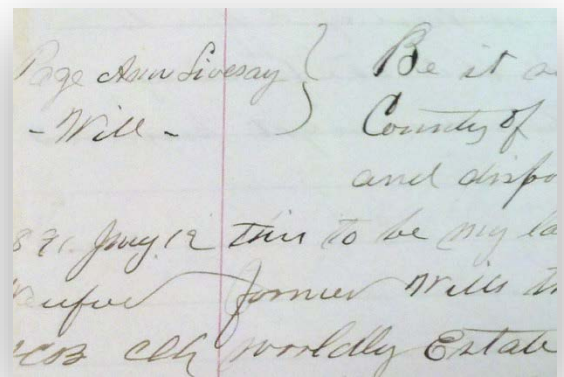 Page Ann Livesay } Be it
- Will - County of
and dispo
891. Jany 12 this to be my la
former Wills th
CB Clk worldly Estate